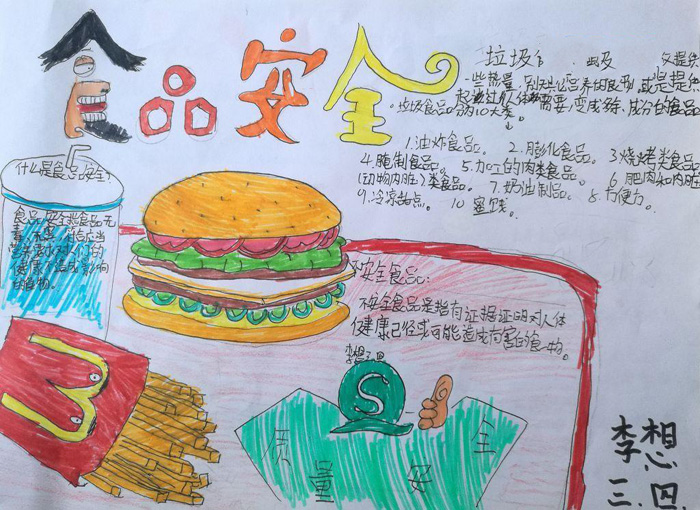 食品安全
垃圾 圾 提供
一些热量,别无它营养的食物,或是提供
超过人体需要,变成多余成分的食品
。垃圾食品 的10大类
1.油炸食品。 2.膨化食品。 3烧烤类食品
4.腌制食品。 5.加工的肉类食品。 6.肥肉和内脏
(动物内脏)类食品。 7.奶油制品。 8.方便
9.冷冻甜点。 10.蜜饯。
什么是食品安全?
食品安全指食品无
毒、无 ,符合应当
的
健康 造成 影响
不安全食品:
不安全食品是指有证据证明对人体
健康已经或可能造成危害的食物。
李想三四
S
质量安全
李想
三.四